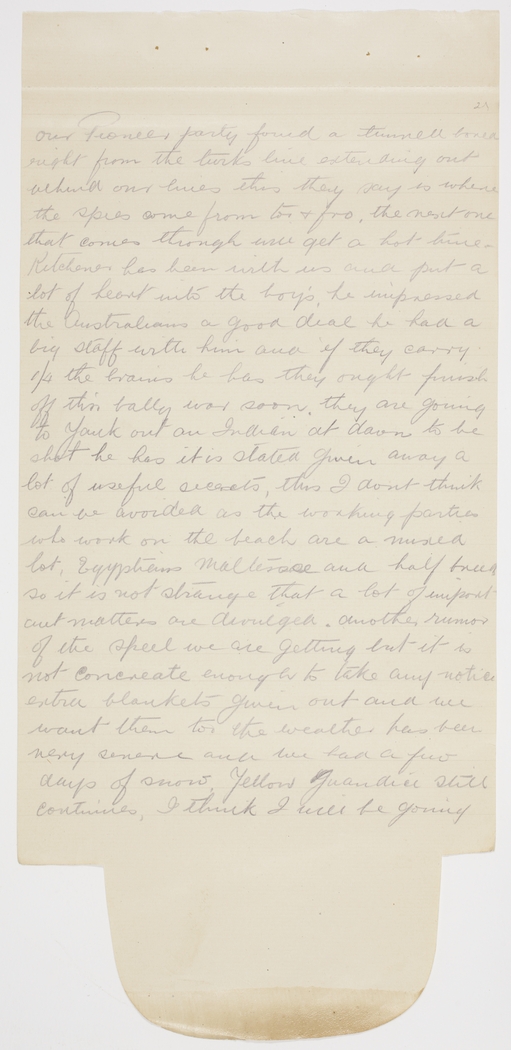 our Pioneer party found a tunnell bored
right from the turks line extending out
behind our lines this they say is where
the spies come from to & fro, the next one
that comes through will get a hot time.
Kitchener has been with us and put a
lot of heart into the boys, he impressed
the Australians a good deal he had a
big staff with him and if they carry
1/4 the brains he has they ought finish
off this bally war soon. they are going
to Yank out an Indian at dawn to be
shot he has it is stated given away a
lot of useful secrets, this I dont think
can be avoided as the working parties
who work on the beach are a mixed
lot, Egyptians Maltese and half bred
so it is not strange that a lot of import
ant matters are divulged. another rumor
of the speel we are getting but it is
not concreate enough to take any notice
extra blankets given out and we
want them too the weather has been
very severe and we had a few
days of snow, Yellow Juandice still
continues, I think I will be going